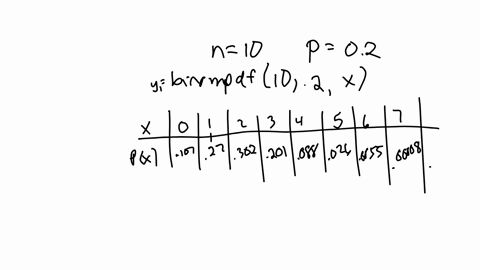 n=10 p=0.2
y₁=binompdf(10, .2, x)
x 0 1 2 3 4 5 6 7
P(x) .107 .27 .302 .201 .088 .026 .0055 .0008